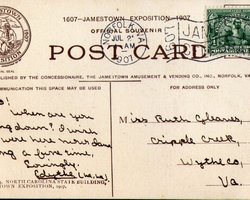 1607-JAMESTOWN EXPOSITION-1907
OFFICIAL SOUVENIR
POST CARD
NORFOLK VA.
JUL 2
AM
1907
JAM
PUBLISHED BY THE CONCESSIONAIRE, THE JAMESTOWN AMUSEMENT & VENDING CO., INC., NORFOLK, VA
COMMUNICATION THIS SPACE MAY BE USED
FOR ADDRESS ONLY
when are you
down? I wish
were here now
a fine time.
Lovingly.
Miss Ruth
Cripple Creek,
Wythe Co,
Va.
NORTH CAROLINA STATE BUILDING,
TOWN EXPOSITION, 1907.